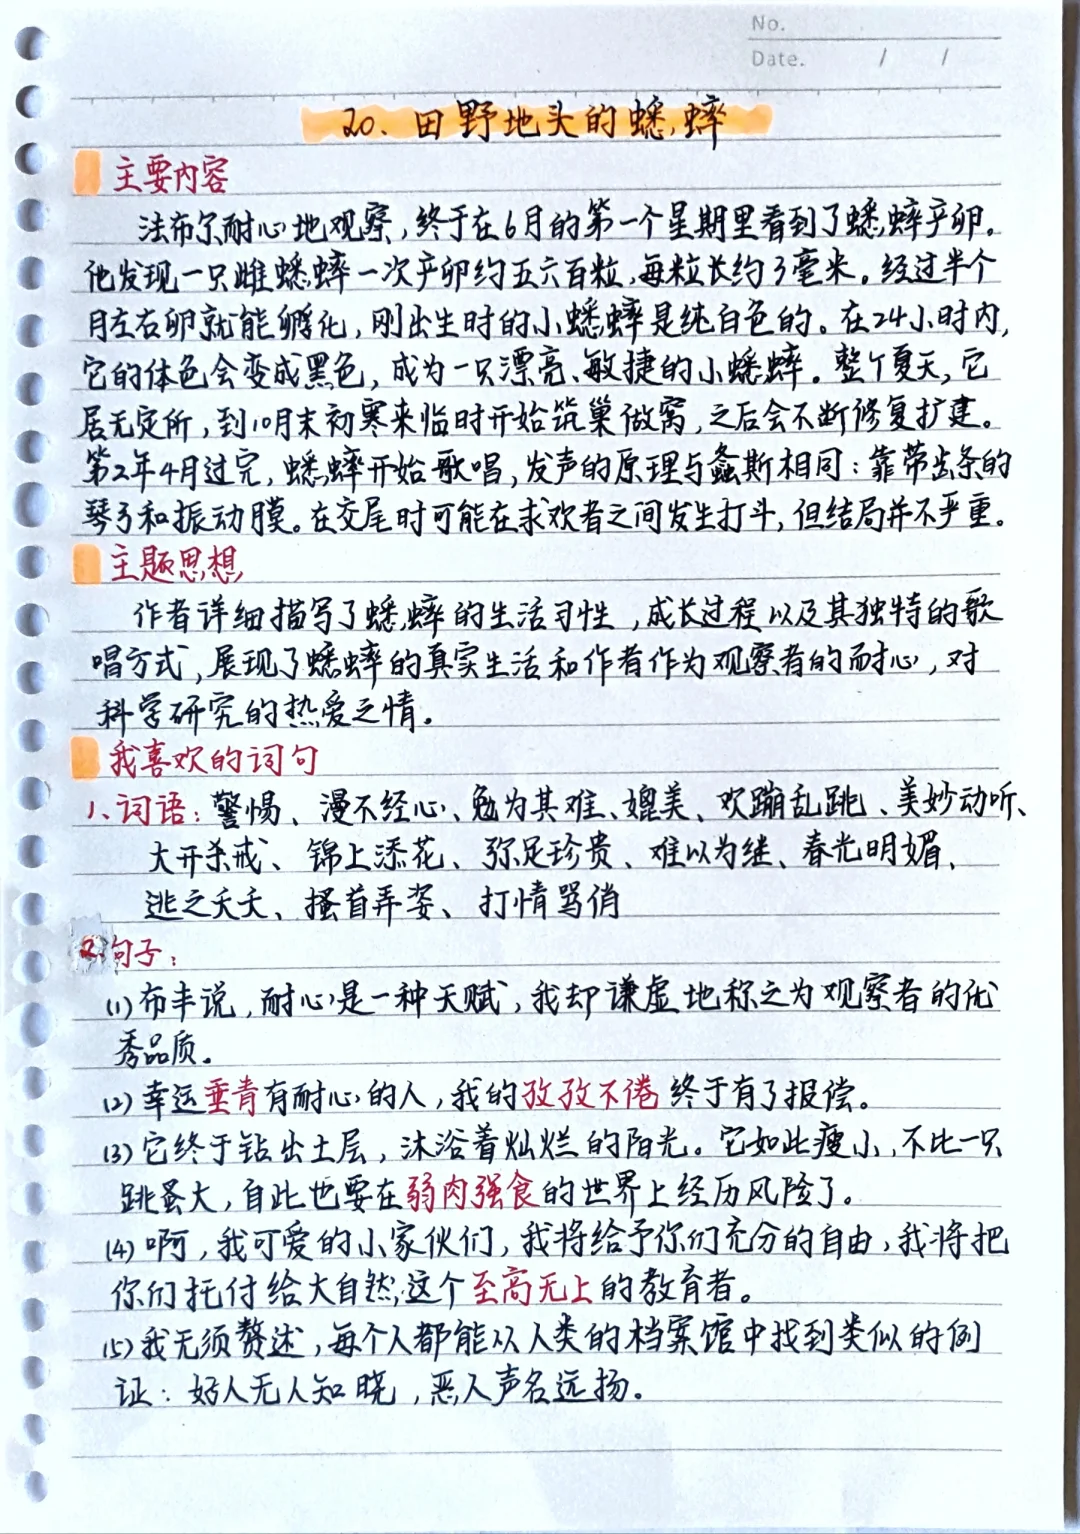 No.
Date. / /
20、田野地头的蟋蟀
主要内容
法布尔耐心地观察,终于在6月的第一个星期里看到了蟋蟀产卵。
他发现一只雌蟋蟀一次产卵约五六百粒,每粒长约3毫米。经过半个
月左右卵就能孵化,刚出生时的小蟋蟀是纯白色的。在24小时内,
它的体色会变成黑色,成为一只漂亮、敏捷的小蟋蟀。整个夏天,它
居无定所,到10月末初寒来临时开始筑巢做窝,之后会不断修复扩建。
第2年4月过完,蟋蟀开始歌唱,发声的原理与螽斯相同:靠带齿条的
琴弓和振动膜。在交尾时可能在求欢者之间发生打斗,但结局并不严重。
主题思想
作者详细描写了蟋蟀的生活习性,成长过程以及其独特的歌
唱方式,展现了蟋蟀的真实生活和作者作为观察者的耐心,对
科学研究的热爱之情。
我喜欢的词句
1、词语:警惕、漫不经心、勉为其难、媲美、欢蹦乱跳、美妙动听、
大开杀戒、锦上添花、弥足珍贵、难以为继、春光明媚、
逃之夭夭、搔首弄姿、打情骂俏
2.句子:
(1)布丰说,耐心是一种天赋,我却谦虚地称之为观察者的优
秀品质。
(2)幸运垂青有耐心的人,我的孜孜不倦终于有了报偿。
(3)它终于钻出土层,沐浴着灿烂的阳光。它如此瘦小,不比一只
跳蚤大,自此也要在弱肉强食的世界上经历风险了。
(4)啊,我可爱的小家伙们,我将给予你们充分的自由,我将把
你们托付给大自然,这个至高无上的教育者。
(5)我无须赘述,每个人都能从人类的档案馆中找到类似的例
证:好人无人知晓,恶人声名远扬。